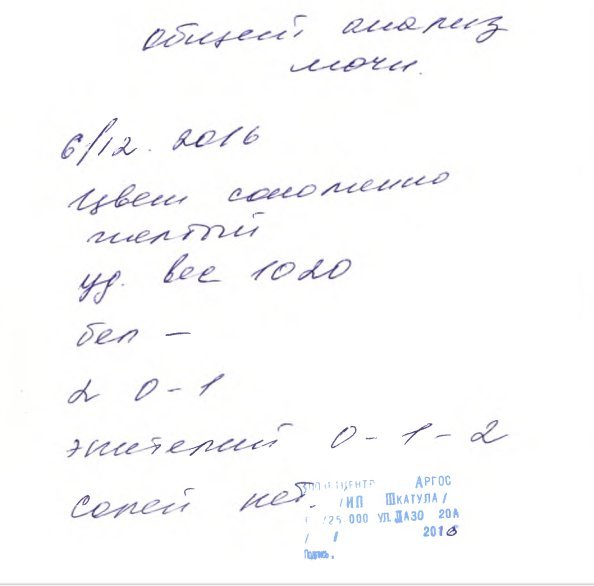 общий анализ
мочи.
6/12. 2016
Цвет соломенно
желтый
уд. вес 1020
бел –
L 0-1
эпителий 0-1-2
солей нет.
АРГОС
/ИП ШКАТУЛА/
25 000 УЛ. ЛАЗО 20А
/ / 2016
Подпись.